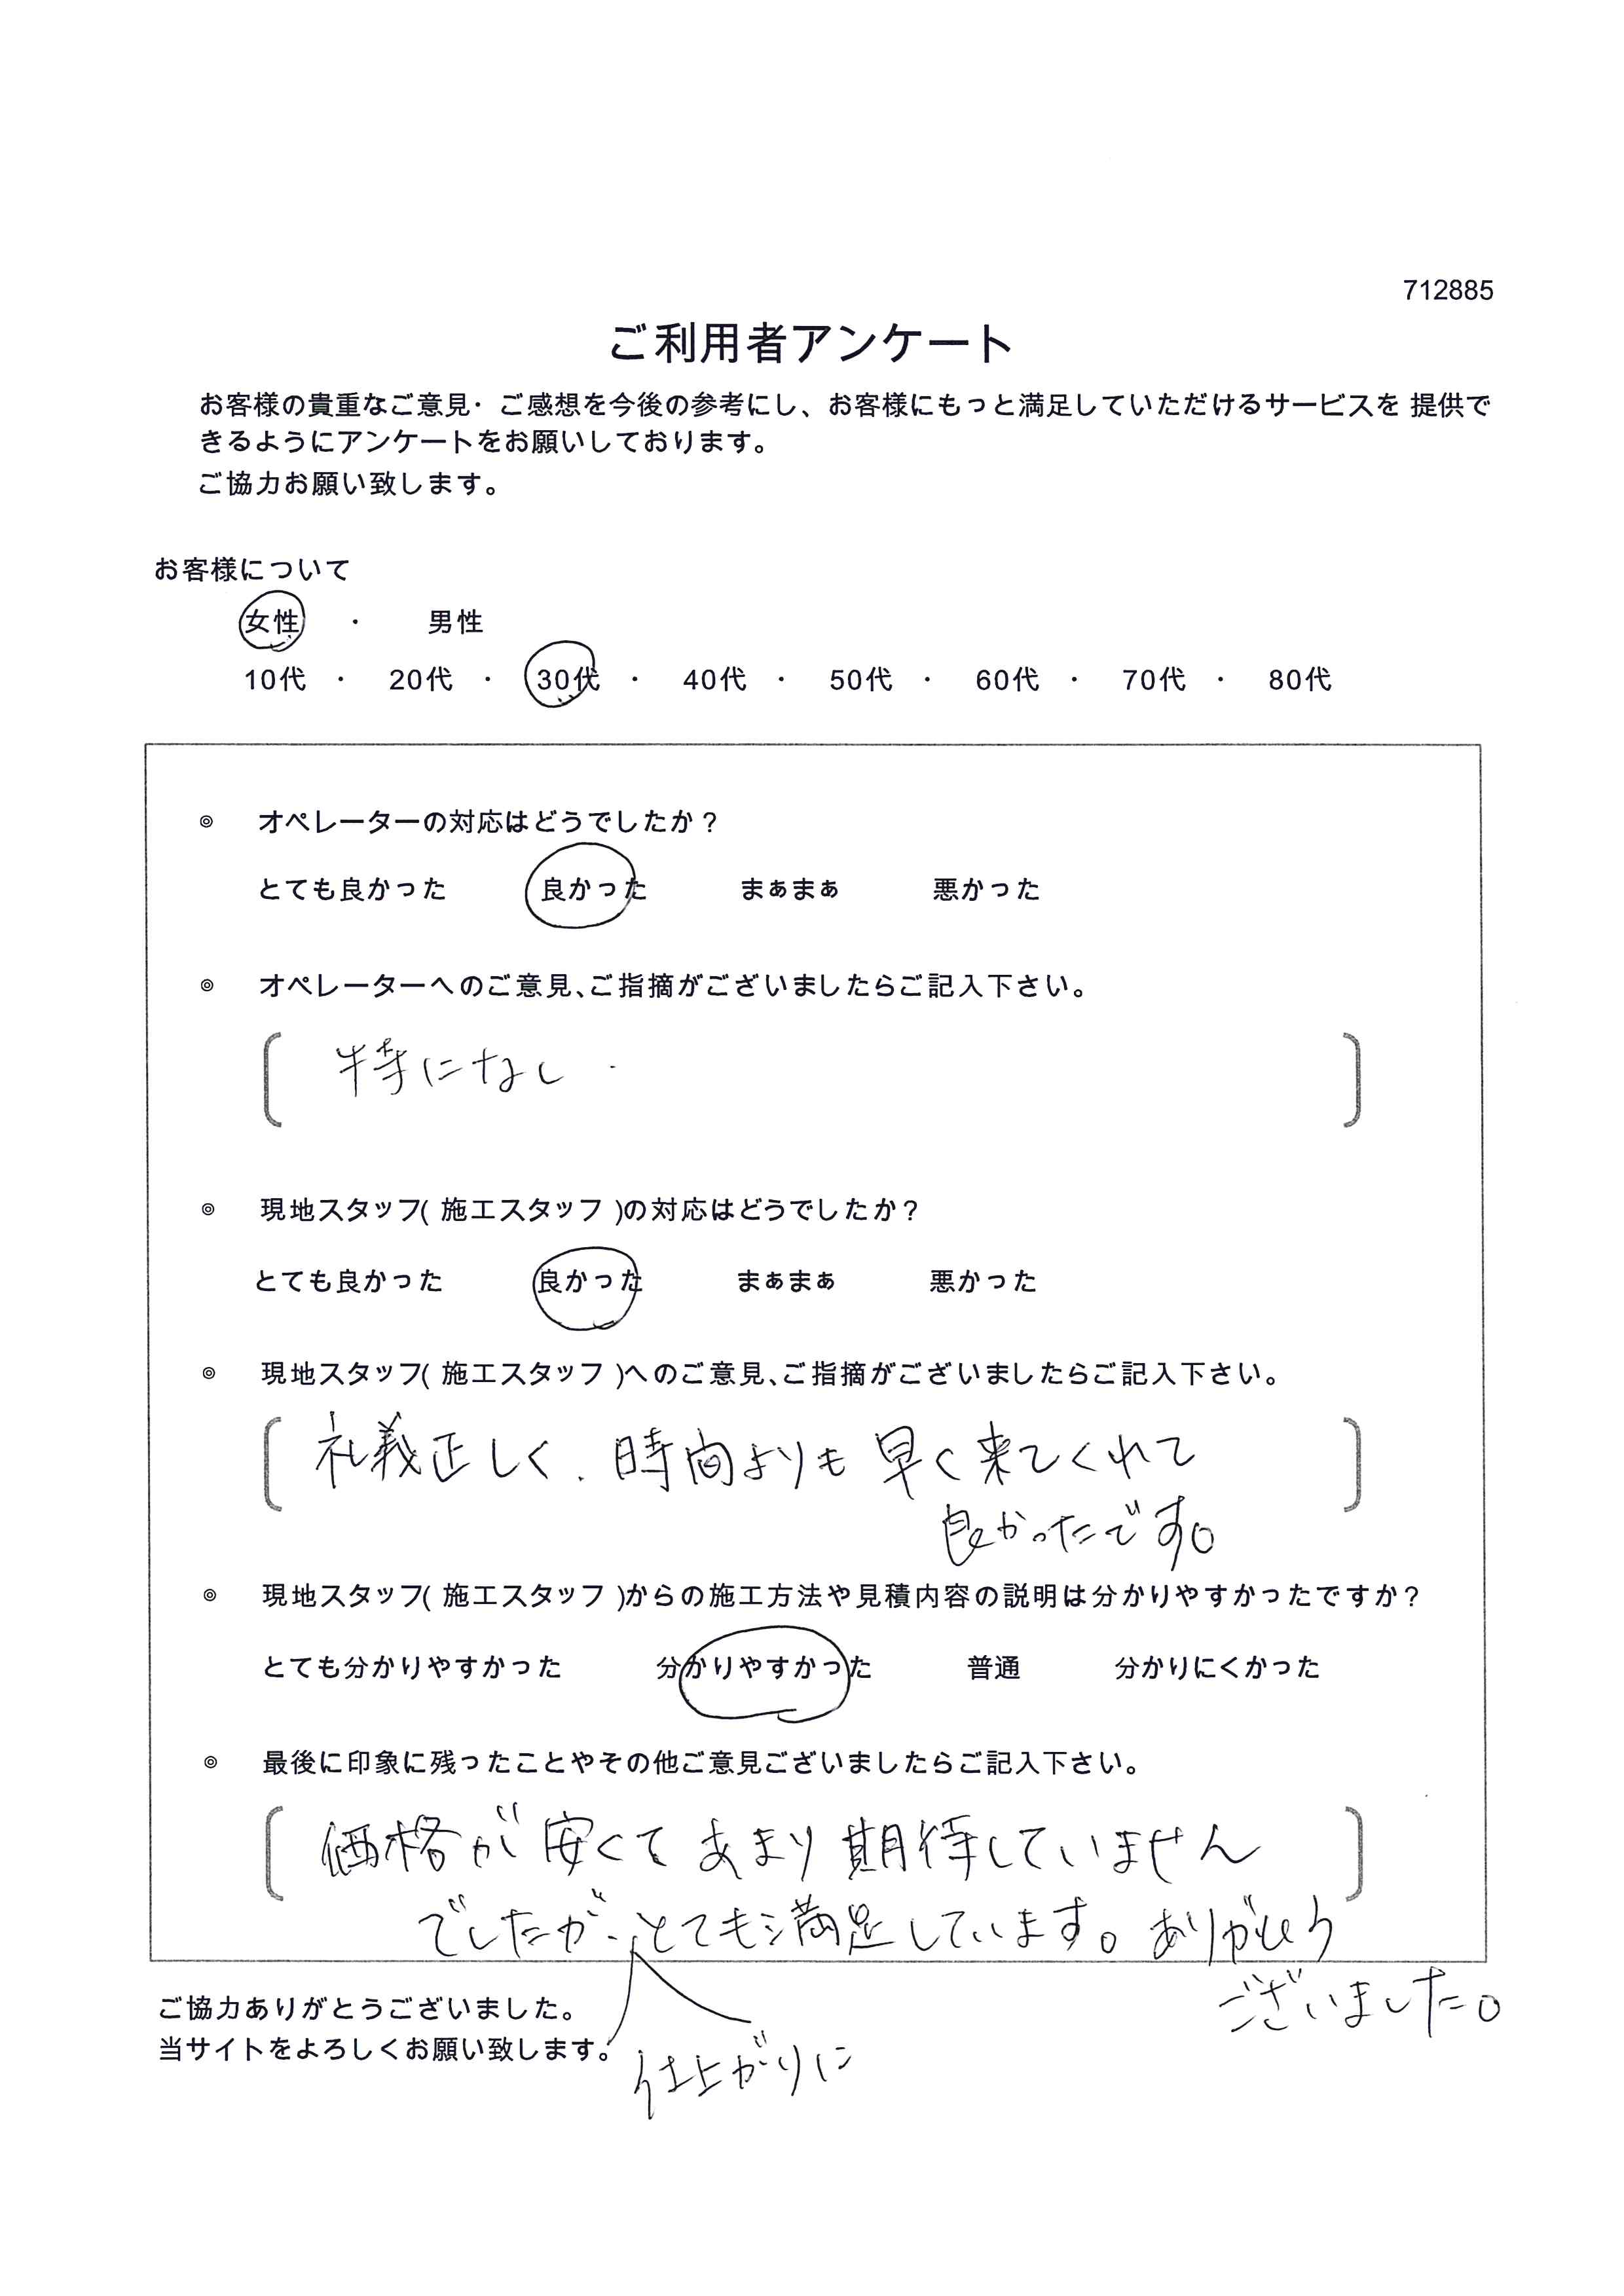 712885
ご利用者アンケート
お客様の貴重なご意見・ご感想を今後の参考にし、お客様にもっと満足していただけるサービスを 提供で
きるようにアンケートをお願いしております。
ご協力お願い致します。
お客様について
女性 ・ 男性
10代 ・ 20代 ・ 30代 ・ 40代 ・ 50代 ・ 60代 ・ 70代 ・ 80代
◎ オペレーターの対応はどうでしたか？
とても良かった 良かった まぁまぁ 悪かった
◎ オペレーターへのご意見、ご指摘がございましたらご記入下さい。
特になし
◎ 現地スタッフ( 施工スタッフ )の対応はどうでしたか？
とても良かった 良かった まぁまぁ 悪かった
◎ 現地スタッフ( 施工スタッフ )へのご意見、ご指摘がございましたらご記入下さい。
礼義正しく、時間よりも早く来てくれて
良かったです。
◎ 現地スタッフ( 施工スタッフ )からの施工方法や見積内容の説明は分かりやすかったですか？
とても分かりやすかった 分かりやすかった 普通 分かりにくかった
◎ 最後に印象に残ったことやその他ご意見ございましたらご記入下さい。
価格が安くてあまり期待していません
でしたが、とても満足しています。ありがとう
ございました。
仕上がりに
ご協力ありがとうございました。
当サイトをよろしくお願い致します。